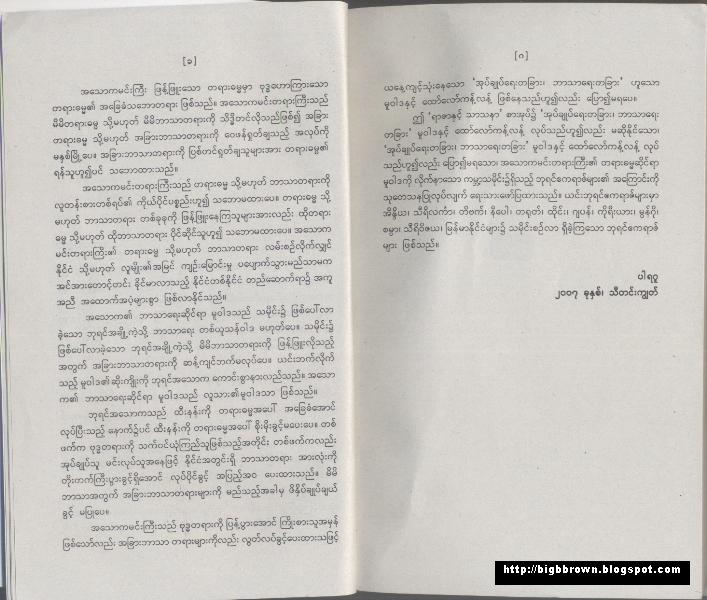 [ခ]
အသောကမင်းကြီး ဖြန့်ဖြူးသော တရားဓမ္မမှာ ဗုဒ္ဓဟောကြားသော
တရားဓမ္မ၏ အခြေခံသဘောတရား ဖြစ်သည်။ အသောကမင်းတရားကြီးသည်
မိမိတရားဓမ္မ သို့မဟုတ် မိမိဘာသာတရားကို သိဒ္ဓိတင်လိုသည်ဖြစ်၍ အခြား
တရားဓမ္မ သို့မဟုတ် အခြားဘာသာတရားကို ဝေဖန်ရှုတ်ချသည် အလုပ်ကို
မနှစ်မြို့ပေ။ အခြားဘာသာတရားကို ပြစ်တင်ရှုတ်ချသူများအား တရားဓမ္မ၏
ရန်သူဟူ၍ပင် သဘောထားသည်။
အသောကမင်းတရားကြီးသည် တရားဓမ္မ သို့မဟုတ် ဘာသာတရားကို
လူတန်းစားတစ်ရပ်၏ ကိုယ်ပိုင်ပစ္စည်းဟူ၍ သဘောမထားပေ။ တရားဓမ္မ သို့
မဟုတ် ဘာသာတရား တစ်ခုခုကို ဖြန့်ဖြူးနေကြသူများအားလည်း ထိုတရား
ဓမ္မ သို့မဟုတ် ထိုဘာသာတရား ပိုင်ဆိုင်သူဟူ၍ သဘောမထားပေ။ အသောက
မင်းတရားကြီး၏ တရားဓမ္မ သို့မဟုတ် ဘာသာတရား လမ်းစဉ်လိုက်လျှင်
နိုင်ငံ သို့မဟုတ် လူမျိုး၏အမြင် ကျဉ်းမြောင်းမှု ပပျောက်သွားမည်သာမက
အင်အားတောင့်တင်း ခိုင်မာလာသည့် နိုင်ငံတစ်နိုင်ငံ တည်ဆောက်ရာ၌ အကူ
အညီ အထောက်အပံ့များစွာ ဖြစ်လာနိုင်သည်။
အသောက၏ ဘာသာရေးဆိုင်ရာ မူဝါဒသည် သမိုင်း၌ ဖြစ်ပေါ်လာ
ခဲ့သော ဘုရင်အချို့ကဲ့သို့ ဘာသာရေး တစ်ယူသန်ဝါဒ မဟုတ်ပေ။ သမိုင်း၌
ဖြစ်ပေါ်လာခဲ့သော ဘုရင်အချို့ကဲ့သို့ မိမိဘာသာတရားကို ဖြန့်ဖြူးလိုသည့်
အတွက် အခြားဘာသာတရားကို ဆန့်ကျင်ဘက်မလုပ်ပေ။ ယင်းဘက်လိုက်
သည့် မူဝါဒ၏ဆိုးကျိုးကို ဘုရင်အသောက ကောင်းစွာနားလည်သည်။ အသော
က၏ ဘာသာရေးဆိုင်ရာ မူဝါဒသည် လူသား၏မူဝါဒသာ ဖြစ်သည်။
ဘုရင်အသောကသည် ထီးနန်းကို တရားဓမ္မအပေါ် အခြေခံအောင်
လုပ်ပြီးသည့် နောက်၌ပင် ထီးနန်းကို တရားဓမ္မအပေါ် စိုးမိုးခွင့်မပေးပေ။ တစ်
ဖက်က ဗုဒ္ဓတရားကို သက်ဝင်ယုံကြည်သူဖြစ်သည့်အတိုင်း တစ်ဖက်ကလည်း
အုပ်ချုပ်သူ မင်းလုပ်သူအနေဖြင့် နိုင်ငံအတွင်းရှိ ဘာသာတရား အားလုံးကို
တိုးတက်ကြီးပွားခွင့်ရှိအောင် လုပ်ပိုင်ခွင့် အပြည့်အဝ ပေးထားသည်။ မိမိ
ဘာသာအတွက် အခြားဘာသာတရားများကို မည်သည့်အခါမှ ဖိနှိပ်ချုပ်ချယ်
ခွင့် မပြုပေ။
အသောကမင်းကြီးသည် ဗုဒ္ဓတရားကို ပြန့်ပွားအောင် ကြိုးစားသူအမှန်
ဖြစ်သော်လည်း အခြားဘာသာ တရားများကိုလည်း လွတ်လပ်ခွင့်ပေးထားသဖြင့်
[ဂ]
ယနေ့ကျင့်သုံးနေသော 'အုပ်ချုပ်ရေးတခြား၊ ဘာသာရေးတခြား' ဟူသော
မူဝါဒနှင့် ထော်လော်ကန့်လန့် ဖြစ်နေသည်ဟူ၍လည်း ပြော၍မရပေ။
ဤ 'ရာဇာနှင့် သာသနာ' စာအုပ်၌ 'အုပ်ချုပ်ရေးတခြား၊ ဘာသာရေး
တခြား' မူဝါဒနှင့် ထော်လော်ကန့်လန့် လုပ်သည်ဟူ၍လည်း မဆိုနိုင်သော၊
'အုပ်ချုပ်ရေးတခြား၊ ဘာသာရေးတခြား' မူဝါဒနှင့် ထော်လော်ကန့်လန့် လုပ်
သည်ဟူ၍လည်း ပြော၍မရသော၊ အသောကမင်းတရားကြီး၏ တရားဓမ္မဆိုင်ရာ
မူဝါဒကို လိုက်နာသော ကမ္ဘာ့သမိုင်း၌ရှိသည့် ဘုရင်ဧကရာဇ်များ၏ အကြောင်းကို
သုတေသနပြုလုပ်လျက် ရေးသားဖော်ပြထားသည်။ ယင်းဘုရင်ဧကရာဇ်များမှာ
အိန္ဒိယ၊ သီရိလင်္ကာ၊ တိဗက်၊ နီပေါ၊ တရုတ်၊ ထိုင်း၊ ဂျပန်၊ ကိုရီးယား၊ မွန်ဂို၊
စမ္ပာ၊ သီရိဝိဇယ၊ မြန်မာနိုင်ငံများ၌ သမိုင်းစဉ်လာ ရှိခဲ့ကြသော ဘုရင်ဧကရာဇ်
များ ဖြစ်သည်။
ပါရဂူ
၂၀၀၇ ခုနှစ်၊ သီတင်းကျွတ်
http://bigbbrown.blogspot.com